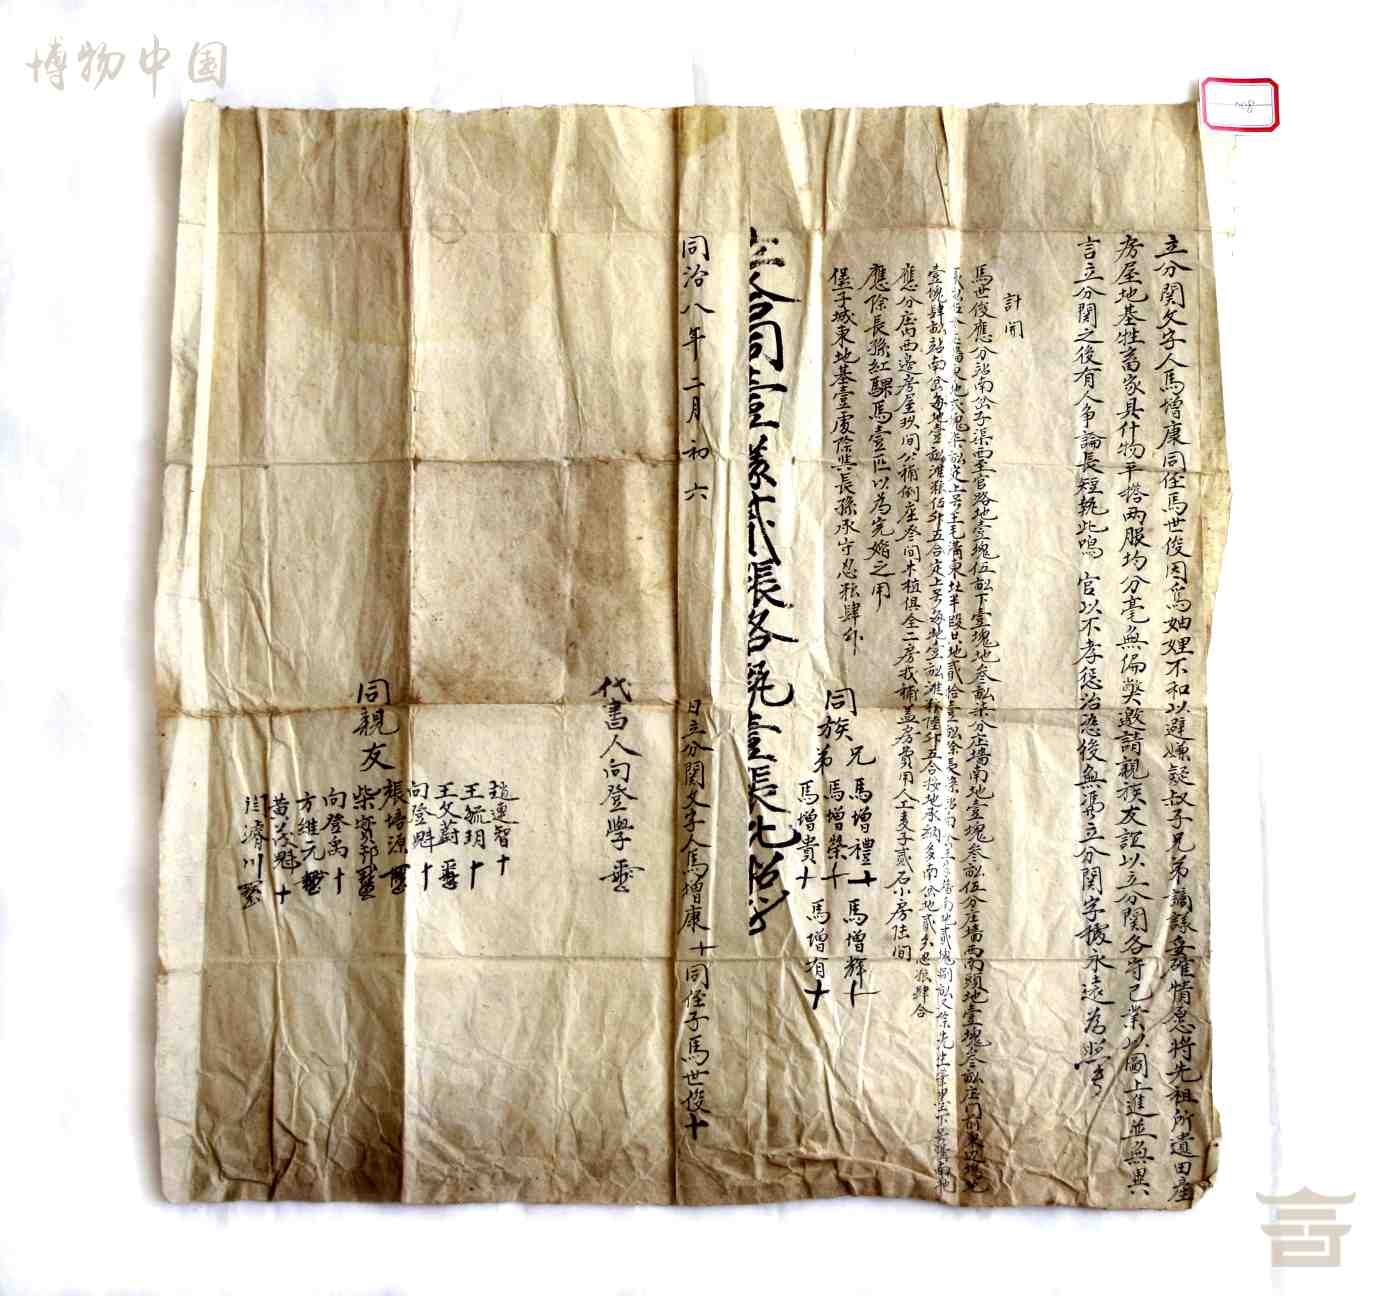 博物中国
立分関文字人馬增康同侄馬世俊因為妯娌不和以避嫌疑叔子兄弟謫議妥確情愿将先祖所遺田産
房屋地基牲畜家具什物平搭両服均分毫無偏獘邀請親族友誼以立分関各守己業以圖上進並無異
言立分関之後有人争論長短執此鳴官以不孝懲治恐後無馮立分関字據永遠為照
計開
馬世俊應分站南岔子渠西至官路地壹塊伍畝下壹塊地叁畝柒分庄墙南地壹塊叁畝伍分庄墙西南頭地壹塊叁畝庄門前東邊塊地
壹塊肆畝站南岔每地壹畝
應分庄西邊房屋玖間公補倒座叁間木植俱全二房我補盖房費用人工麦子貳石小房陆間
應除長孫紅騍馬壹匹以為完婚之用
堡子城東地基壹處除與長孫承守忍粮肆升
同族
兄
弟
馬增禮十 馬增輝十
馬增榮十
馬增貴十 馬增有十
立合同壹樣貳張各執壹張為照
同治八年二月初六日立分関文字人馬增康十同侄子馬世俊十
代書人向登學
同親友
趙連智十
王毓玥十
王文蔚
向登魁十
張培源
柴賓邦
向登禹十
方維元
黄茂魁十
濬川